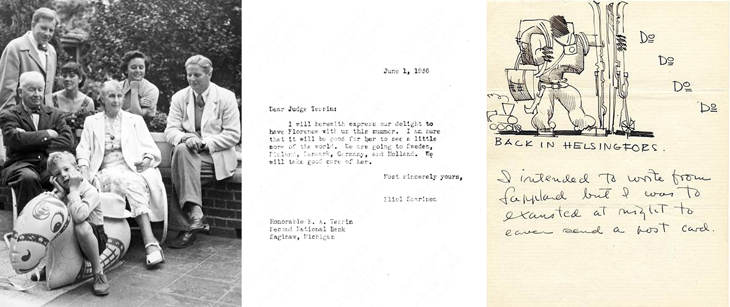 June 1, 1936
Dear Judge Terrin:
I will herewith express our delight to
have Florence with us this summer. I am sure
that it will be good for her to see a little
more of the world. We are going to Sweden,
Finland, Denmark, Germany, and Holland. We
will take good care of her.
Most sincerely yours,
Eliel Saarinen
Honorable
Second National Bank
Saginaw, Michigan
Do
Do
Do
Do
BACK IN HELSINGFORS.
I intended to write from
Lappland but I was to
exausted at night to
eaven send a post card.